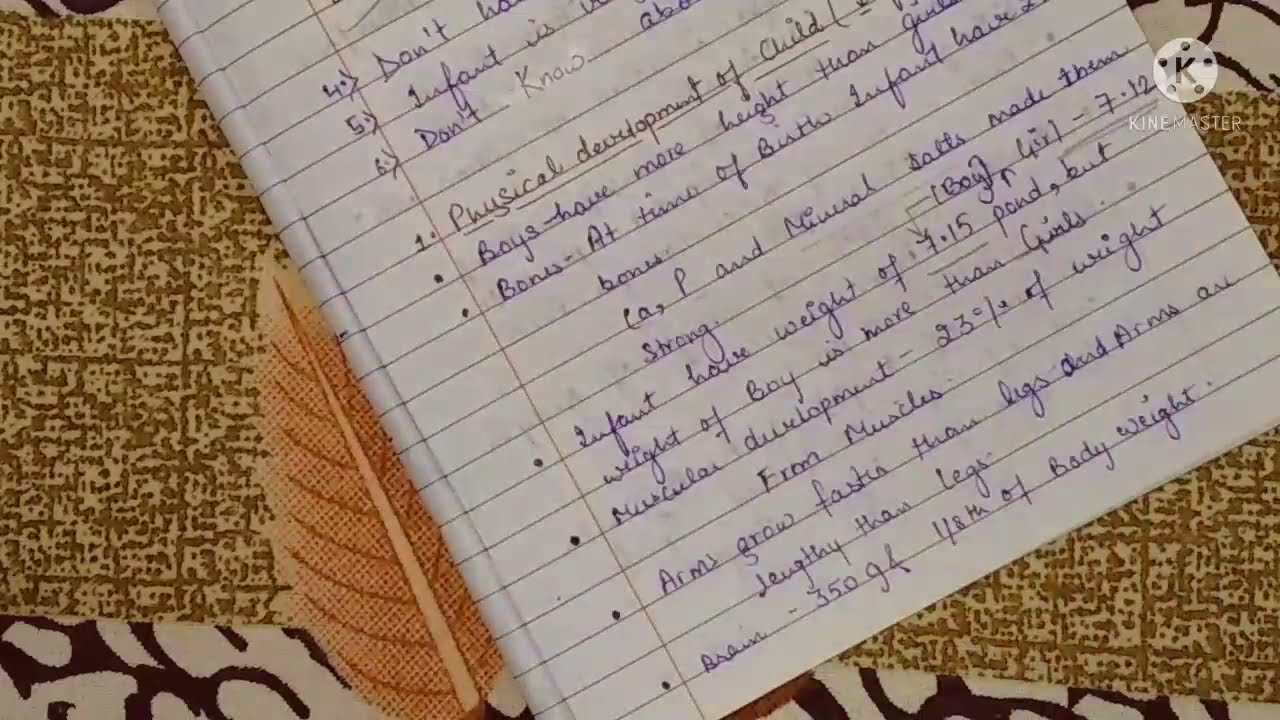 4.) Don't
5.) Infant is
6.) Don't Know
1. Physical development of Child (
• Boys - have more height than girls
• Bones - At time of Birth Infant have 2
bones.
Ca, P and Mineral salts made them
strong. (Boy) Girl - 7.12
• Infant have weight of 7.15 pond, but
weight of Boy is more than Girls.
• Muscular development - 23% of weight
From Muscles.
• Arms grow faster than legs and Arms are
lengthy than legs.
• Brain - 350g & 1/8th of Body weight.
KINEMASTER